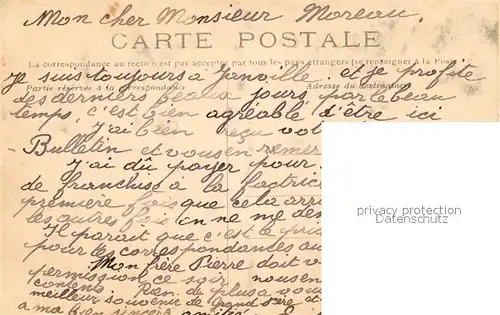 Mon cher Monsieur Moreau,
CARTE POSTALE
La correspondance au recto n'est pas acceptée par tous les pays étrangers (se renseigner à la Poste)
Je suis toujours a Janville. et je profite
Partie réservée à la correspondance
Adresse du destinataire
des derniers beaux jours par le beau
temps, c'est bien agréable d'être ici
J'ai bien reçu vot
Bulletin et vous en remer
J'ai dû payer pour
de franchise à la factric
première fois que cela arri
les autres fois on ne me den
Il parait que c'est le
pour les correspondantes au
Mon frère Pierre doit v
permission ce soir, nous en
contents Rien de plus a vous
meilleur souvenir de Grand'Mère et
a ma bien sincère amitié
privacy protection
Datenschutz